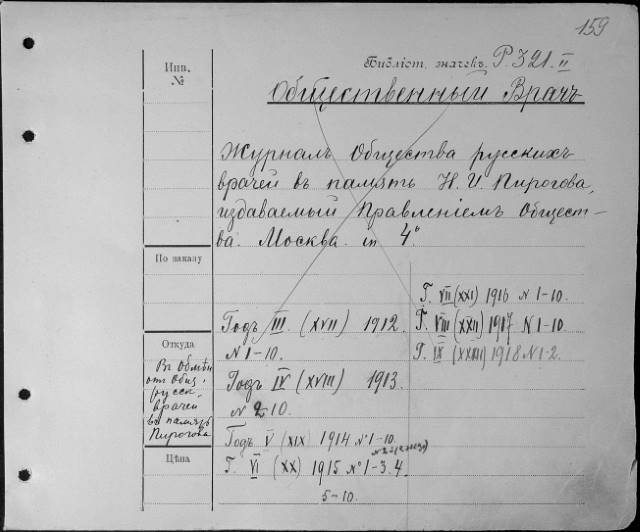 159
Инв.
№
Библіот. значекъ. Р.321.II
Общественный Врачъ
Журналъ Общества русскихъ
врачей въ память Н. И. Пирогова,
издаваемый Правленіемъ Общест-
ва. Москва. in 4°
По заказу
Г. VII (XXI) 1916 N 1-10.
Годъ III. (XVII) 1912.
Г. VIII (XXII) 1917 N 1-10.
N 1-10.
Г. IX (XXIII) 1918 N 1-2.
Откуда
Въ Обмѣн
от Общ.
русск.
врачей
въ память
Пирогова
Годъ IV (XVIII) 1913.
N 2-10.
Годъ V (XIX) 1914 N° 1-10.
Цѣна
Г. VI (XX) 1915 N° 1-3. 4.
5-10.